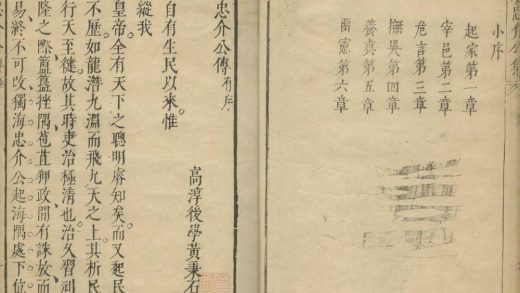 忠介公集
小序
起家第一章
宰邑第二章
危言第三章
撫吳第四章
養真第五章
留憲第六章
忠介公傳有序
高淳後學黃秉石
自有生民以來惟
縱我
皇帝全有天下之聰明睿知矣而又起民
不歷如龍潛九淵而飛九天之上其析民
行天至徙故其時吏治極清也治久習
隆之際簠簋挫隅苞苴狎政間有誅放而
易終不可改獨海忠介公起海隅處下位